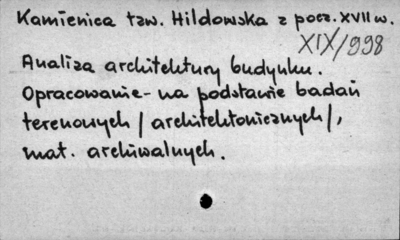 Kamienica tzw. Hildowska z pocz. XVII w.
XIX/998
Analiza architektury budynku.
Opracowanie - na podstawie badań
terenowych /architektonicznych/,
mat. archiwalnych.